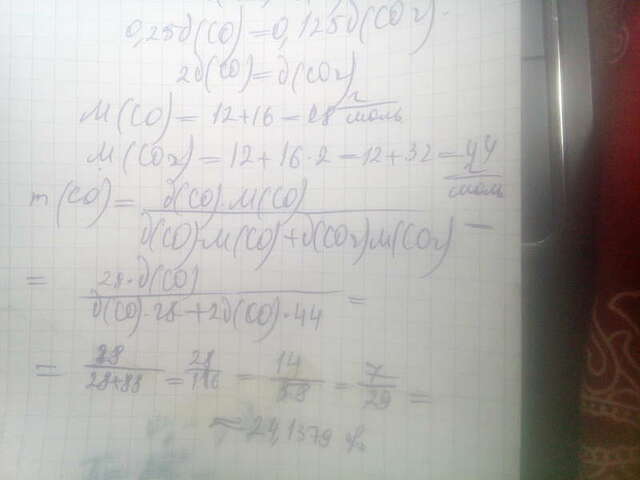 0,25∂(CO) = 0,125∂(CO₂).
2∂(CO) = ∂(CO₂)
M(CO) = 12+16 = 28 г/моль
M(CO₂) = 12+16·2 = 12+32 = 44 г/моль
m(CO) = ∂(CO)·M(CO) / ∂(CO)·M(CO)+∂(CO₂)M(CO₂) =
= 28·∂(CO) / ∂(CO)·28+2∂(CO)·44 =
= 28/28+88 = 28/116 = 14/58 = 7/29 =
≈ 24,1379 %